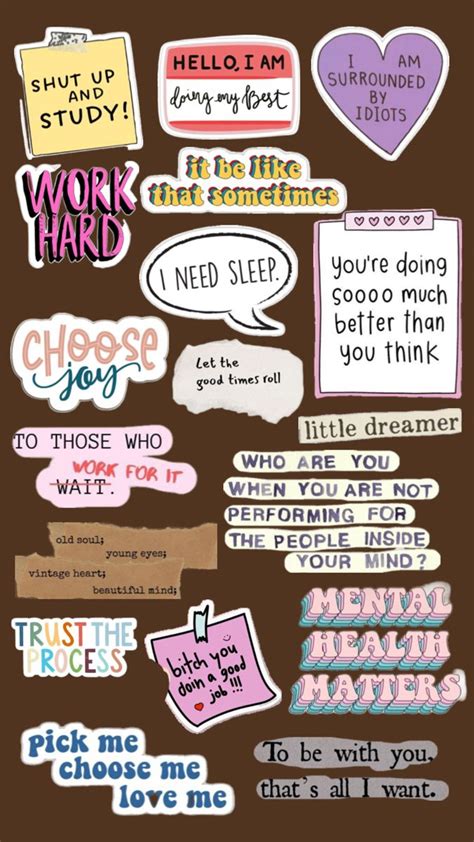 SHUT UP
AND
STUDY!
HELLO, I AM
doing my Best
I AM
SURROUNDED
BY
IDIOTS
WORK
HARD
it be like
that sometimes
I NEED SLEEP.
you're doing
soooo much
better than
you think
CHOOSE
joy
Let the
good times roll
little dreamer
TO THOSE WHO
WORK FOR IT
WAIT.
WHO ARE YOU
WHEN YOU ARE NOT
PERFORMING FOR
THE PEOPLE INSIDE
YOUR MIND?
old soul;
young eyes;
vintage heart;
beautiful mind;
TRUST THE
PROCESS
bitch you
doin a good
job !!!
MENTAL
HEALTH
MATTERS
pick me
choose me
love me
To be with you,
that's all I want.